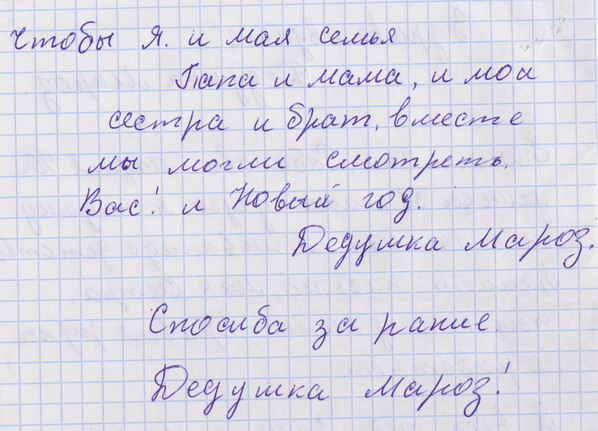 чтобы я. и мая семья
Папа и мама, и моя
сестра и брат, вместе
мы могли смотреть.
Вас! и Новый год.
Дедушка Мароз.
Спасиба за рание
Дедушка Мароз!